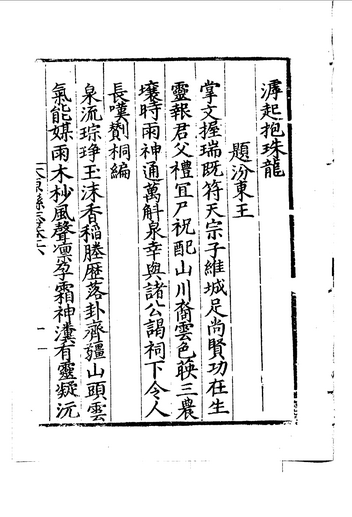 澤起抱珠龍
題汾東王
掌文握瑞既符天宗子維城足尚賢功在生
靈報君父禮冝尸祝配山川裔雲色映三農
壤時雨神通萬斛泉幸與諸公謁祠下令人
長嘆剪桐編
泉流琮琤玉沫香稻塍歴落卦齊疆山頭雲
氣能媒雨木杪風聲凛孕霜神瀵有靈凝沅